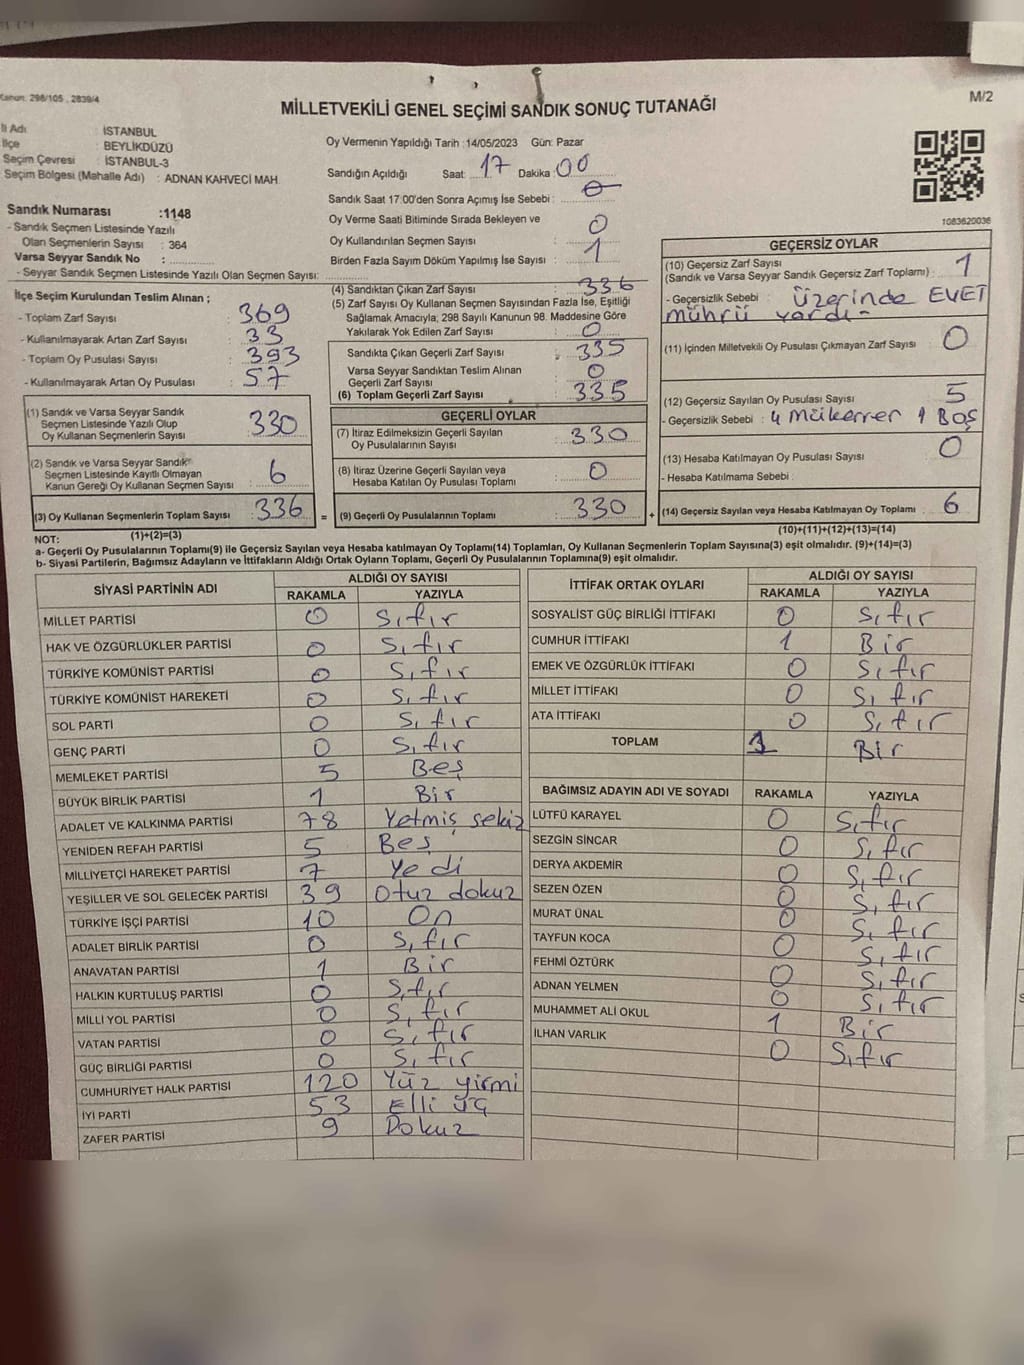 Kanun: 298/105 , 2839/4
MİLLETVEKİLİ GENEL SEÇİMİ SANDIK SONUÇ TUTANAĞI
M/2
İl Adı : İSTANBUL
İlçe : BEYLİKDÜZÜ
Seçim Çevresi : İSTANBUL-3
Seçim Bölgesi (Mahalle Adı) : ADNAN KAHVECİ MAH.
Sandık Numarası :1148
- Sandık Seçmen Listesinde Yazılı
Olan Seçmenlerin Sayısı : 364
Varsa Seyyar Sandık No :
- Seyyar Sandık Seçmen Listesinde Yazılı Olan Seçmen Sayısı:
Oy Vermenin Yapıldığı Tarih :14/05/2023 Gün: Pazar
Sandığın Açıldığı Saat: 17 Dakika: 00
Sandık Saat 17:00'den Sonra Açımış İse Sebebi : 0
Oy Verme Saati Bitiminde Sırada Bekleyen ve
Oy Kullandırılan Seçmen Sayısı : 0
Birden Fazla Sayım Döküm Yapılmış İse Sayısı : 1
1083620036
İlçe Seçim Kurulundan Teslim Alınan ;
- Toplam Zarf Sayısı : 369
- Kullanılmayarak Artan Zarf Sayısı : 33
- Toplam Oy Pusulası Sayısı : 393
- Kullanılmayarak Artan Oy Pusulası : 57
(1) Sandık ve Varsa Seyyar Sandık
Seçmen Listesinde Yazılı Olup
Oy Kullanan Seçmenlerin Sayısı : 330
(2) Sandık ve Varsa Seyyar Sandık
Seçmen Listesinde Kayıtlı Olmayan
Kanun Gereği Oy Kullanan Seçmen Sayısı : 6
(3) Oy Kullanan Seçmenlerin Toplam Sayısı : 336
(1)+(2)=(3)
(4) Sandıktan Çıkan Zarf Sayısı : 336
(5) Zarf Sayısı Oy Kullanan Seçmen Sayısından Fazla İse, Eşitliği
Sağlamak Amacıyla; 298 Sayılı Kanunun 98. Maddesine Göre
Yakılarak Yok Edilen Zarf Sayısı : 0
Sandıkta Çıkan Geçerli Zarf Sayısı : 335
Varsa Seyyar Sandıktan Teslim Alınan
Geçerli Zarf Sayısı : 0
(6) Toplam Geçerli Zarf Sayısı : 335
GEÇERLİ OYLAR
(7) İtiraz Edilmeksizin Geçerli Sayılan
Oy Pusulalarının Sayısı : 330
(8) İtiraz Üzerine Geçerli Sayılan veya
Hesaba Katılan Oy Pusulası Toplamı : 0
= (9) Geçerli Oy Pusulalarının Toplamı : 330 +
GEÇERSİZ OYLAR
(10) Geçersiz Zarf Sayısı
(Sandık ve Varsa Seyyar Sandık Geçersiz Zarf Toplamı) : 1
- Geçersizlik Sebebi : Üzerinde EVET
mührü vardı-
(11) İçinden Milletvekili Oy Pusulası Çıkmayan Zarf Sayısı : 0
(12) Geçersiz Sayılan Oy Pusulası Sayısı : 5
- Geçersizlik Sebebi : 4 Mükerrer 1 Boş
(13) Hesaba Katılmayan Oy Pusulası Sayısı : 0
- Hesaba Katılmama Sebebi :
(14) Geçersiz Sayılan veya Hesaba Katılmayan Oy Toplamı : 6
(10)+(11)+(12)+(13)=(14)
NOT:
a- Geçerli Oy Pusulalarının Toplamı(9) ile Geçersiz Sayılan veya Hesaba katılmayan Oy Toplamı(14) Toplamları, Oy Kullanan Seçmenlerin Toplam Sayısına(3) eşit olmalıdır. (9)+(14)=(3)
b- Siyasi Partilerin, Bağımsız Adayların ve İttifakların Aldığı Ortak Oyların Toplamı, Geçerli Oy Pusulalarının Toplamına(9) eşit olmalıdır.
SİYASİ PARTİNİN ADI ALDIĞI OY SAYISI
RAKAMLA YAZIYLA
MİLLET PARTİSİ 0 Sıfır
HAK VE ÖZGÜRLÜKLER PARTİSİ 0 Sıfır
TÜRKİYE KOMÜNİST PARTİSİ 0 Sıfır
TÜRKİYE KOMÜNİST HAREKETİ 0 Sıfır
SOL PARTİ 0 Sıfır
GENÇ PARTİ 0 Sıfır
MEMLEKET PARTİSİ 5 Beş
BÜYÜK BİRLİK PARTİSİ 1 Bir
ADALET VE KALKINMA PARTİSİ 78 Yetmiş sekiz
YENİDEN REFAH PARTİSİ 5 Beş
MİLLİYETÇİ HAREKET PARTİSİ 7 Yedi
YEŞİLLER VE SOL GELECEK PARTİSİ 39 Otuz dokuz
TÜRKİYE İŞÇİ PARTİSİ 10 On
ADALET BİRLİK PARTİSİ 0 Sıfır
ANAVATAN PARTİSİ 1 Bir
HALKIN KURTULUŞ PARTİSİ 0 Sıfır
MİLLİ YOL PARTİSİ 0 Sıfır
VATAN PARTİSİ 0 Sıfır
GÜÇ BİRLİĞİ PARTİSİ 0 Sıfır
CUMHURİYET HALK PARTİSİ 120 Yüz yirmi
İYİ PARTİ 53 Elli üç
ZAFER PARTİSİ 9 Dokuz
İTTİFAK ORTAK OYLARI ALDIĞI OY SAYISI
RAKAMLA YAZIYLA
SOSYALİST GÜÇ BİRLİĞİ İTTİFAKI 0 Sıfır
CUMHUR İTTİFAKI 1 Bir
EMEK VE ÖZGÜRLÜK İTTİFAKI 0 Sıfır
MİLLET İTTİFAKI 0 Sıfır
ATA İTTİFAKI 0 Sıfır
TOPLAM 1 Bir
BAĞIMSIZ ADAYIN ADI VE SOYADI RAKAMLA YAZIYLA
LÜTFÜ KARAYEL 0 Sıfır
SEZGİN SİNCAR 0 Sıfır
DERYA AKDEMİR 0 Sıfır
SEZEN ÖZEN 0 Sıfır
MURAT ÜNAL 0 Sıfır
TAYFUN KOCA 0 Sıfır
FEHMİ ÖZTÜRK 0 Sıfır
ADNAN YELMEN 0 Sıfır
MUHAMMET ALİ OKUL 1 Bir
İLHAN VARLIK 0 Sıfır